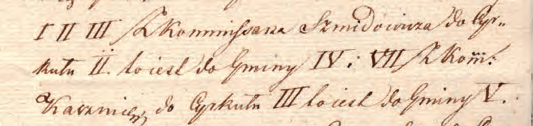 I II III Kommissarza Szmidowicza do Cyr-
kułu II. to iest do Gminy IV. i VII Kom:
do Cyrkułu III to iest do Gminy V.